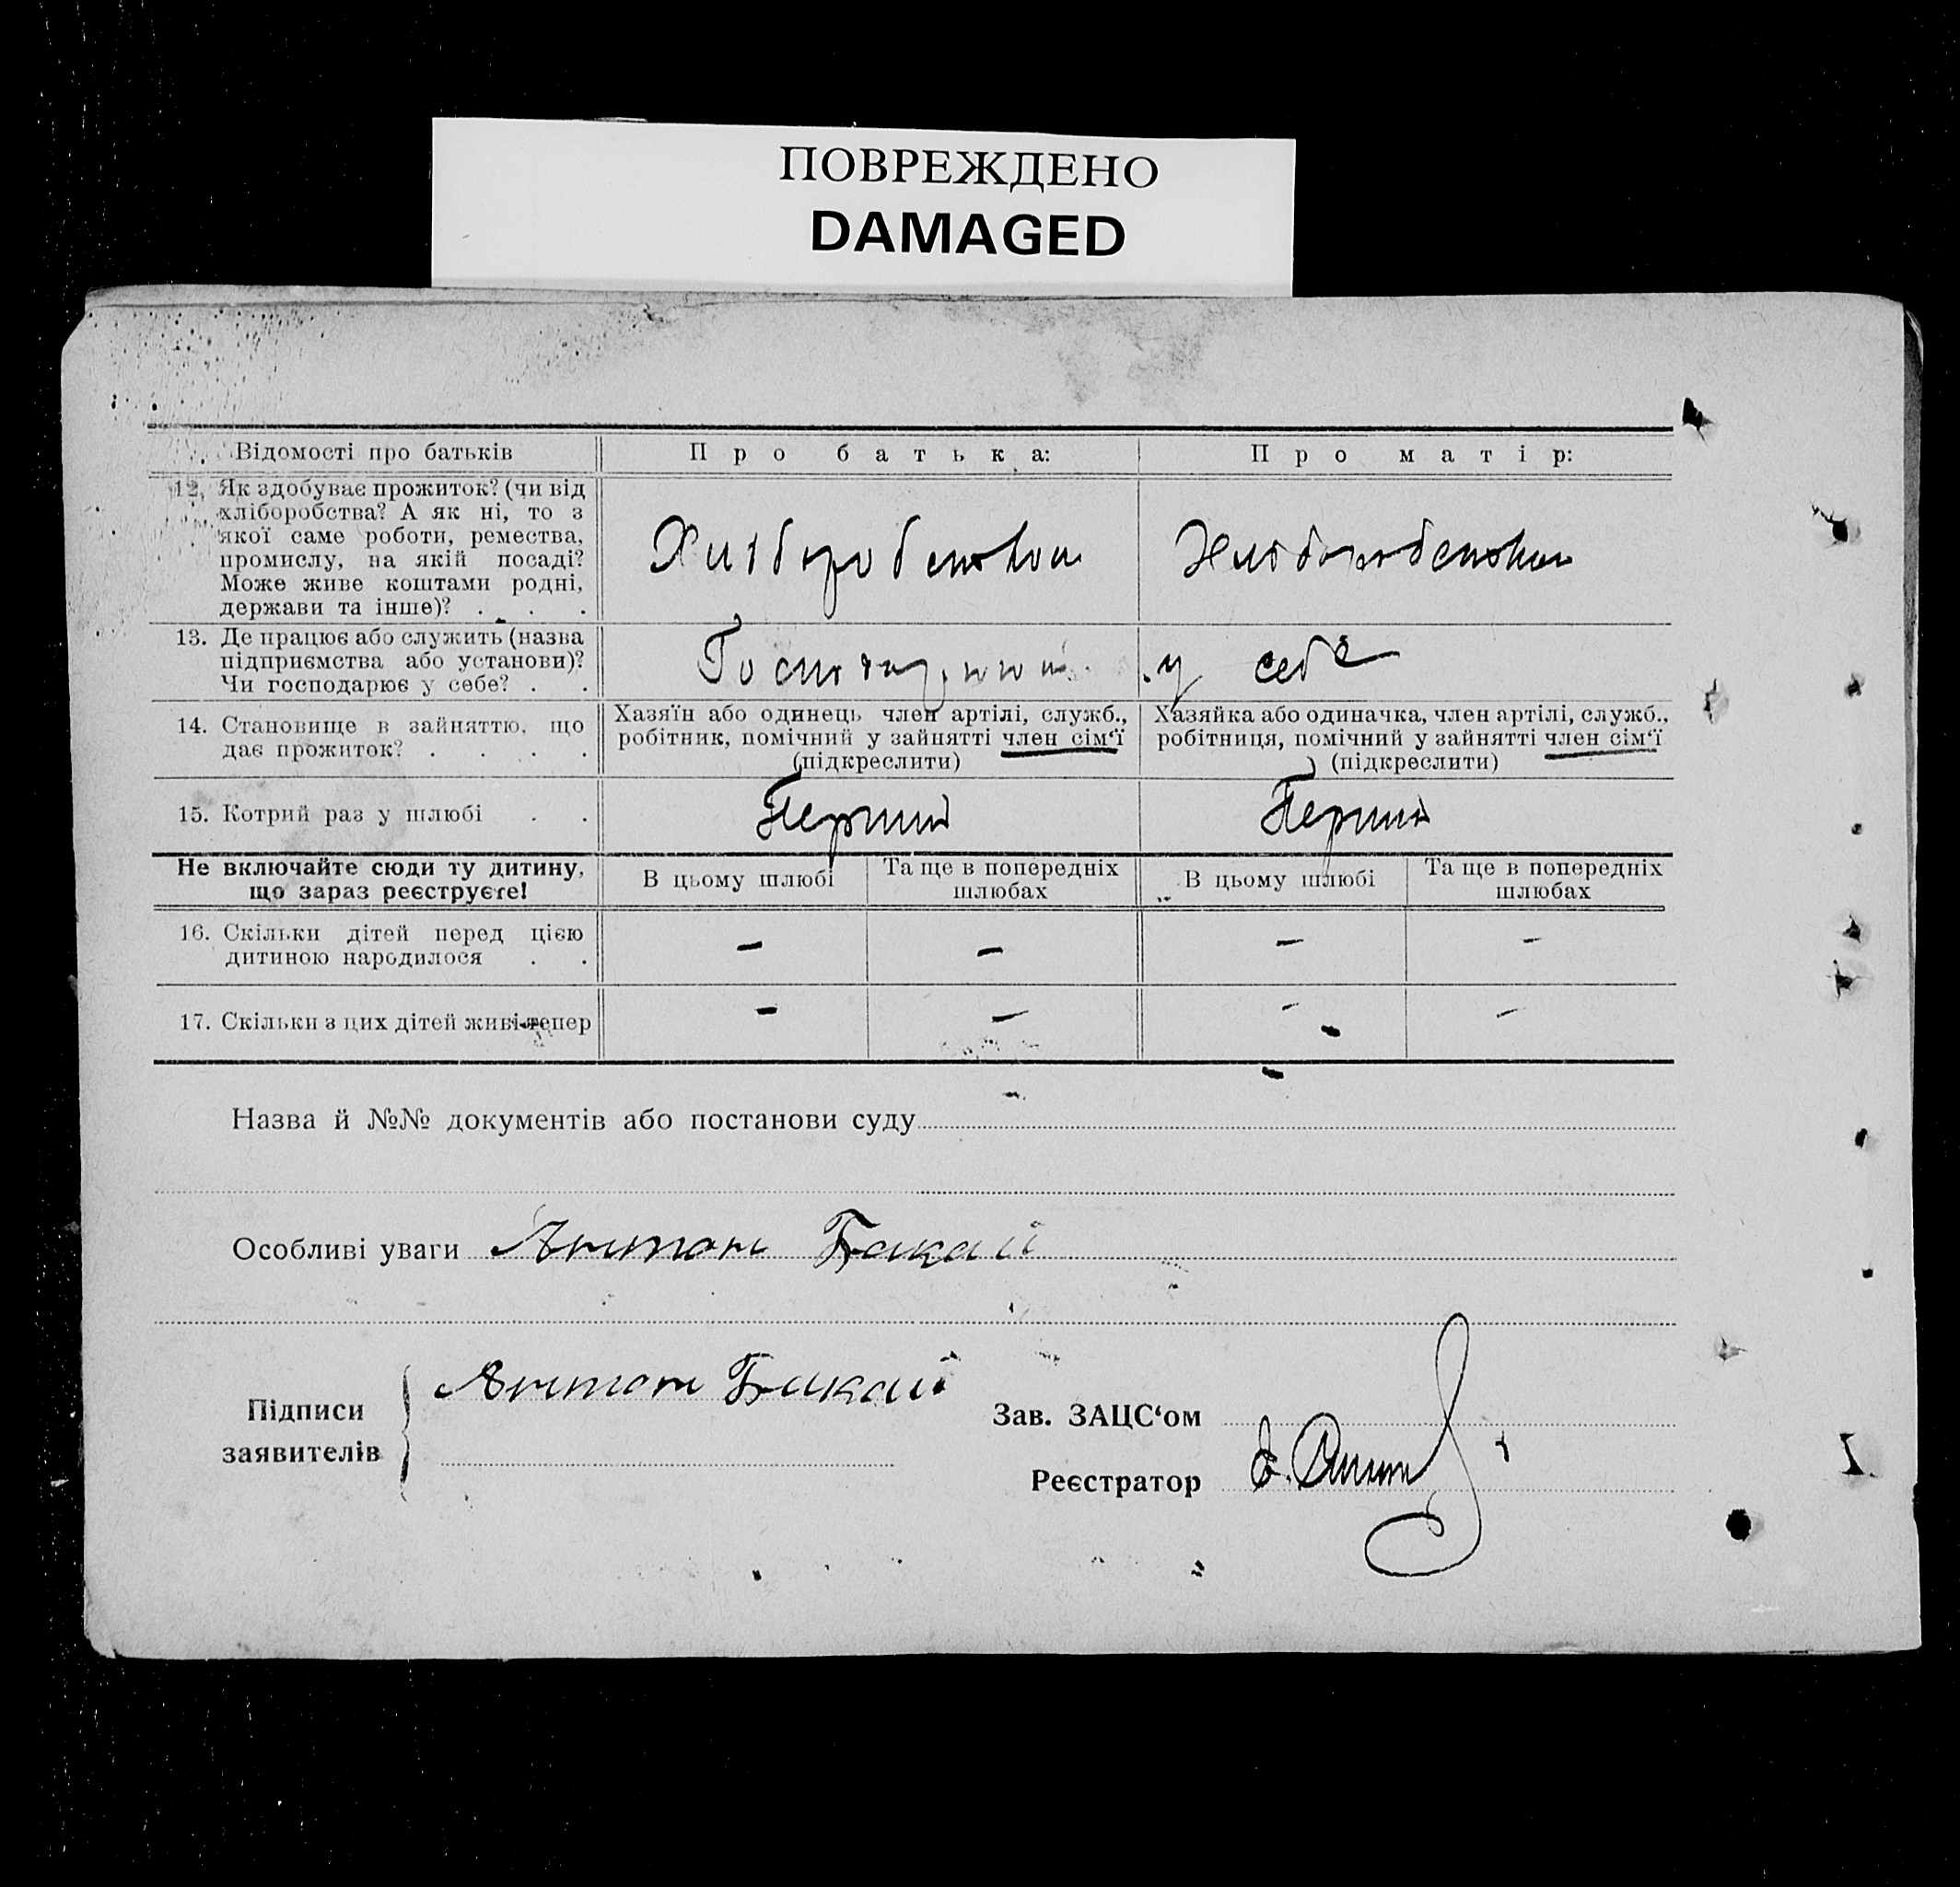 ПОВРЕЖДЕНО
DAMAGED
Відомості про батьків
Про батька:
Про матір:
12. Як здобуває прожиток? (чи від
хліборобства? А як ні, то з
якої саме роботи, ремества,
промислу, на якій посаді?
Може живе коштами родні,
держави та інше)? . . .
Хліборобством
Хліборобством
13. Де працює або служить (назва
підприємства або установи)?
Чи господарює у себе? . .
у себе
14. Становище в зайняттю, що
дає прожиток? . . . .
Хазяїн або одинець член артілі, служб.,
робітник, помічний у зайнятті член сім‘ї
(підкреслити)
Хазяйка або одиначка, член артілі, служб.,
робітниця, помічний у зайнятті член сім‘ї
(підкреслити)
15. Котрий раз у шлюбі . .
Перший
Перший
Не включайте сюди ту дитину,
що зараз реєструєте!
В цьому шлюбі
Та ще в попередніх
шлюбах
В цьому шлюбі
Та ще в попередніх
шлюбах
16. Скільки дітей перед цією
дитиною народилося . .
– – – –
17. Скільки з цих дітей живі тепер
– – – –
Назва й №№ документів або постанови суду
Особливі уваги Антон Бакай
Підписи
заявителів
Антон Бакай
Зав. ЗАЦС‘ом
Реєстратор